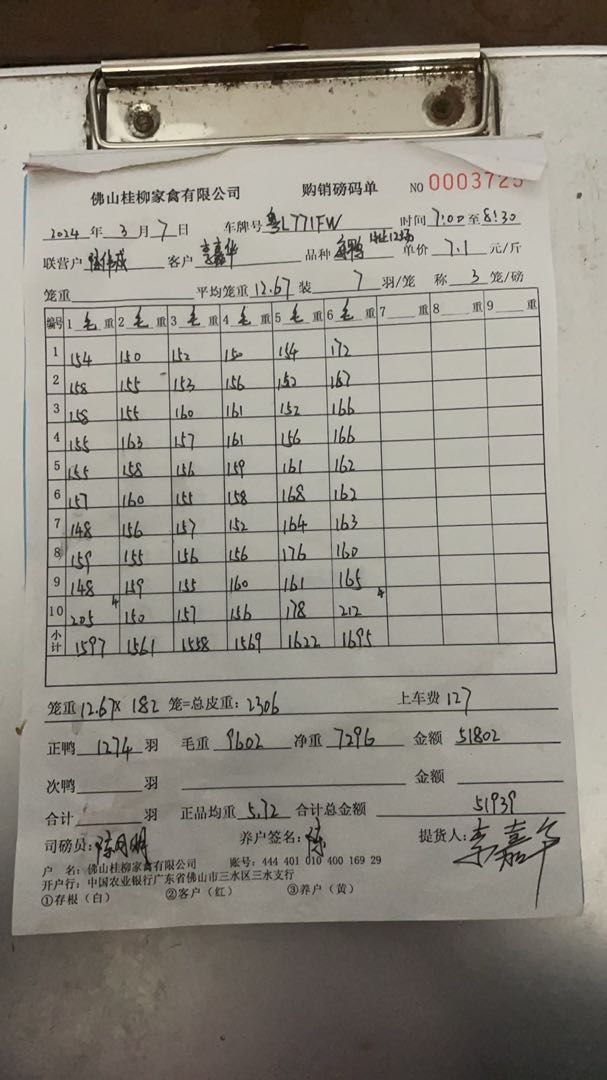 佛山桂柳家禽有限公司 购销磅码单 NO 0003725
2024 年 3 月 7 日 车牌号 粤L771FW 时间 7:00 至 8:30
联营户 客户 李嘉华 品种 单价 7.1 元/斤
笼重 平均笼重 12.67 装 7 羽/笼 称 3 笼/磅
编号 1 毛 重 2 毛 重 3 毛 重 4 毛 重 5 毛 重 6 毛 重 7 重 8 重 9 重
1 154 150 152 150 154 172
2 158 155 153 156 152 167
3 158 155 160 161 152 166
4 155 163 157 161 156 166
5 155 158 156 159 161 162
6 157 160 155 158 168 162
7 148 156 157 152 164 163
8 159 155 156 156 176 160
9 148 159 155 160 161 165
10 205 4 150 157 156 178 212 4
小计 1597 1561 1558 1569 1622 1695
笼重 12.67 × 182 笼=总皮重: 2306 上车费 127
正鸭 1274 羽 毛重 9602 净重 7296 金额 51802
次鸭 羽 金额
合计 羽 正品均重 5.72 合计总金额 51939
司磅员: 养户签名: 陈 提货人: 李嘉华
户 名: 佛山桂柳家禽有限公司 账号: 444 401 010 400 169 29
开户行: 中国农业银行广东省佛山市三水区三水支行
①存根(白) ②客户(红) ③养户(黄)